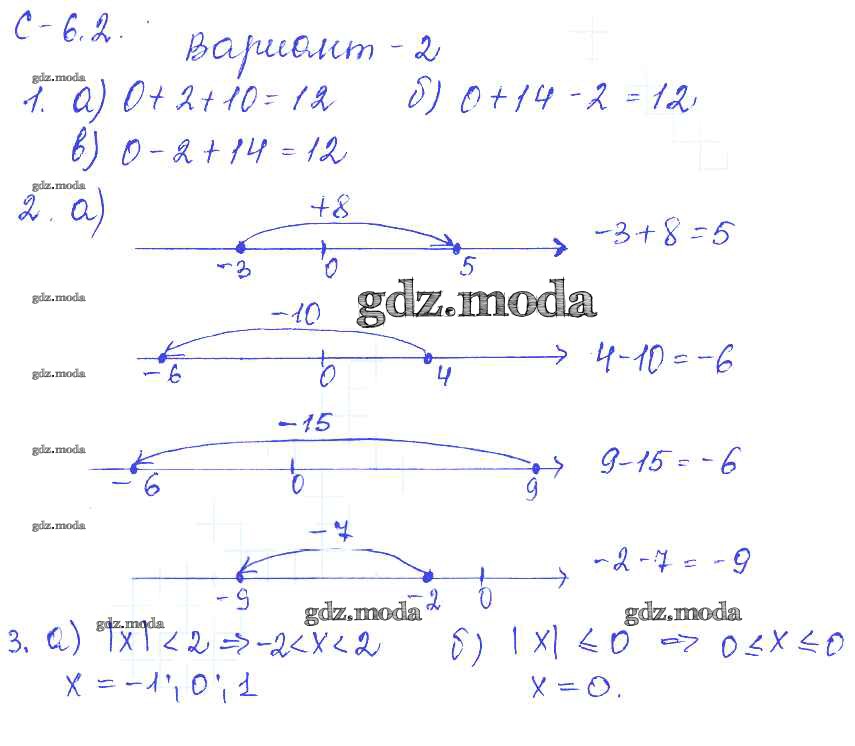 С-6.2.
Вариант-2
gdz.moda
1. а) 0+2+10=12 б) 0+14-2=12,
в) 0-2+14=12
gdz.moda
2. а)
+8
-3 0 5
-3+8=5
gdz.moda
gdz.moda
-10
-6 0 4
4-10=-6
gdz.moda
-15
-6 0 9
9-15=-6
gdz.moda
gdz.moda
-7
-9 -2 0
-2-7=-9
gdz.moda gdz.moda
gdz.moda
3. а) |x|<2 ⇒ -2<x<2 б) |x|≤0 ⇒ 0≤x≤0
x=-1; 0; 1 x=0.